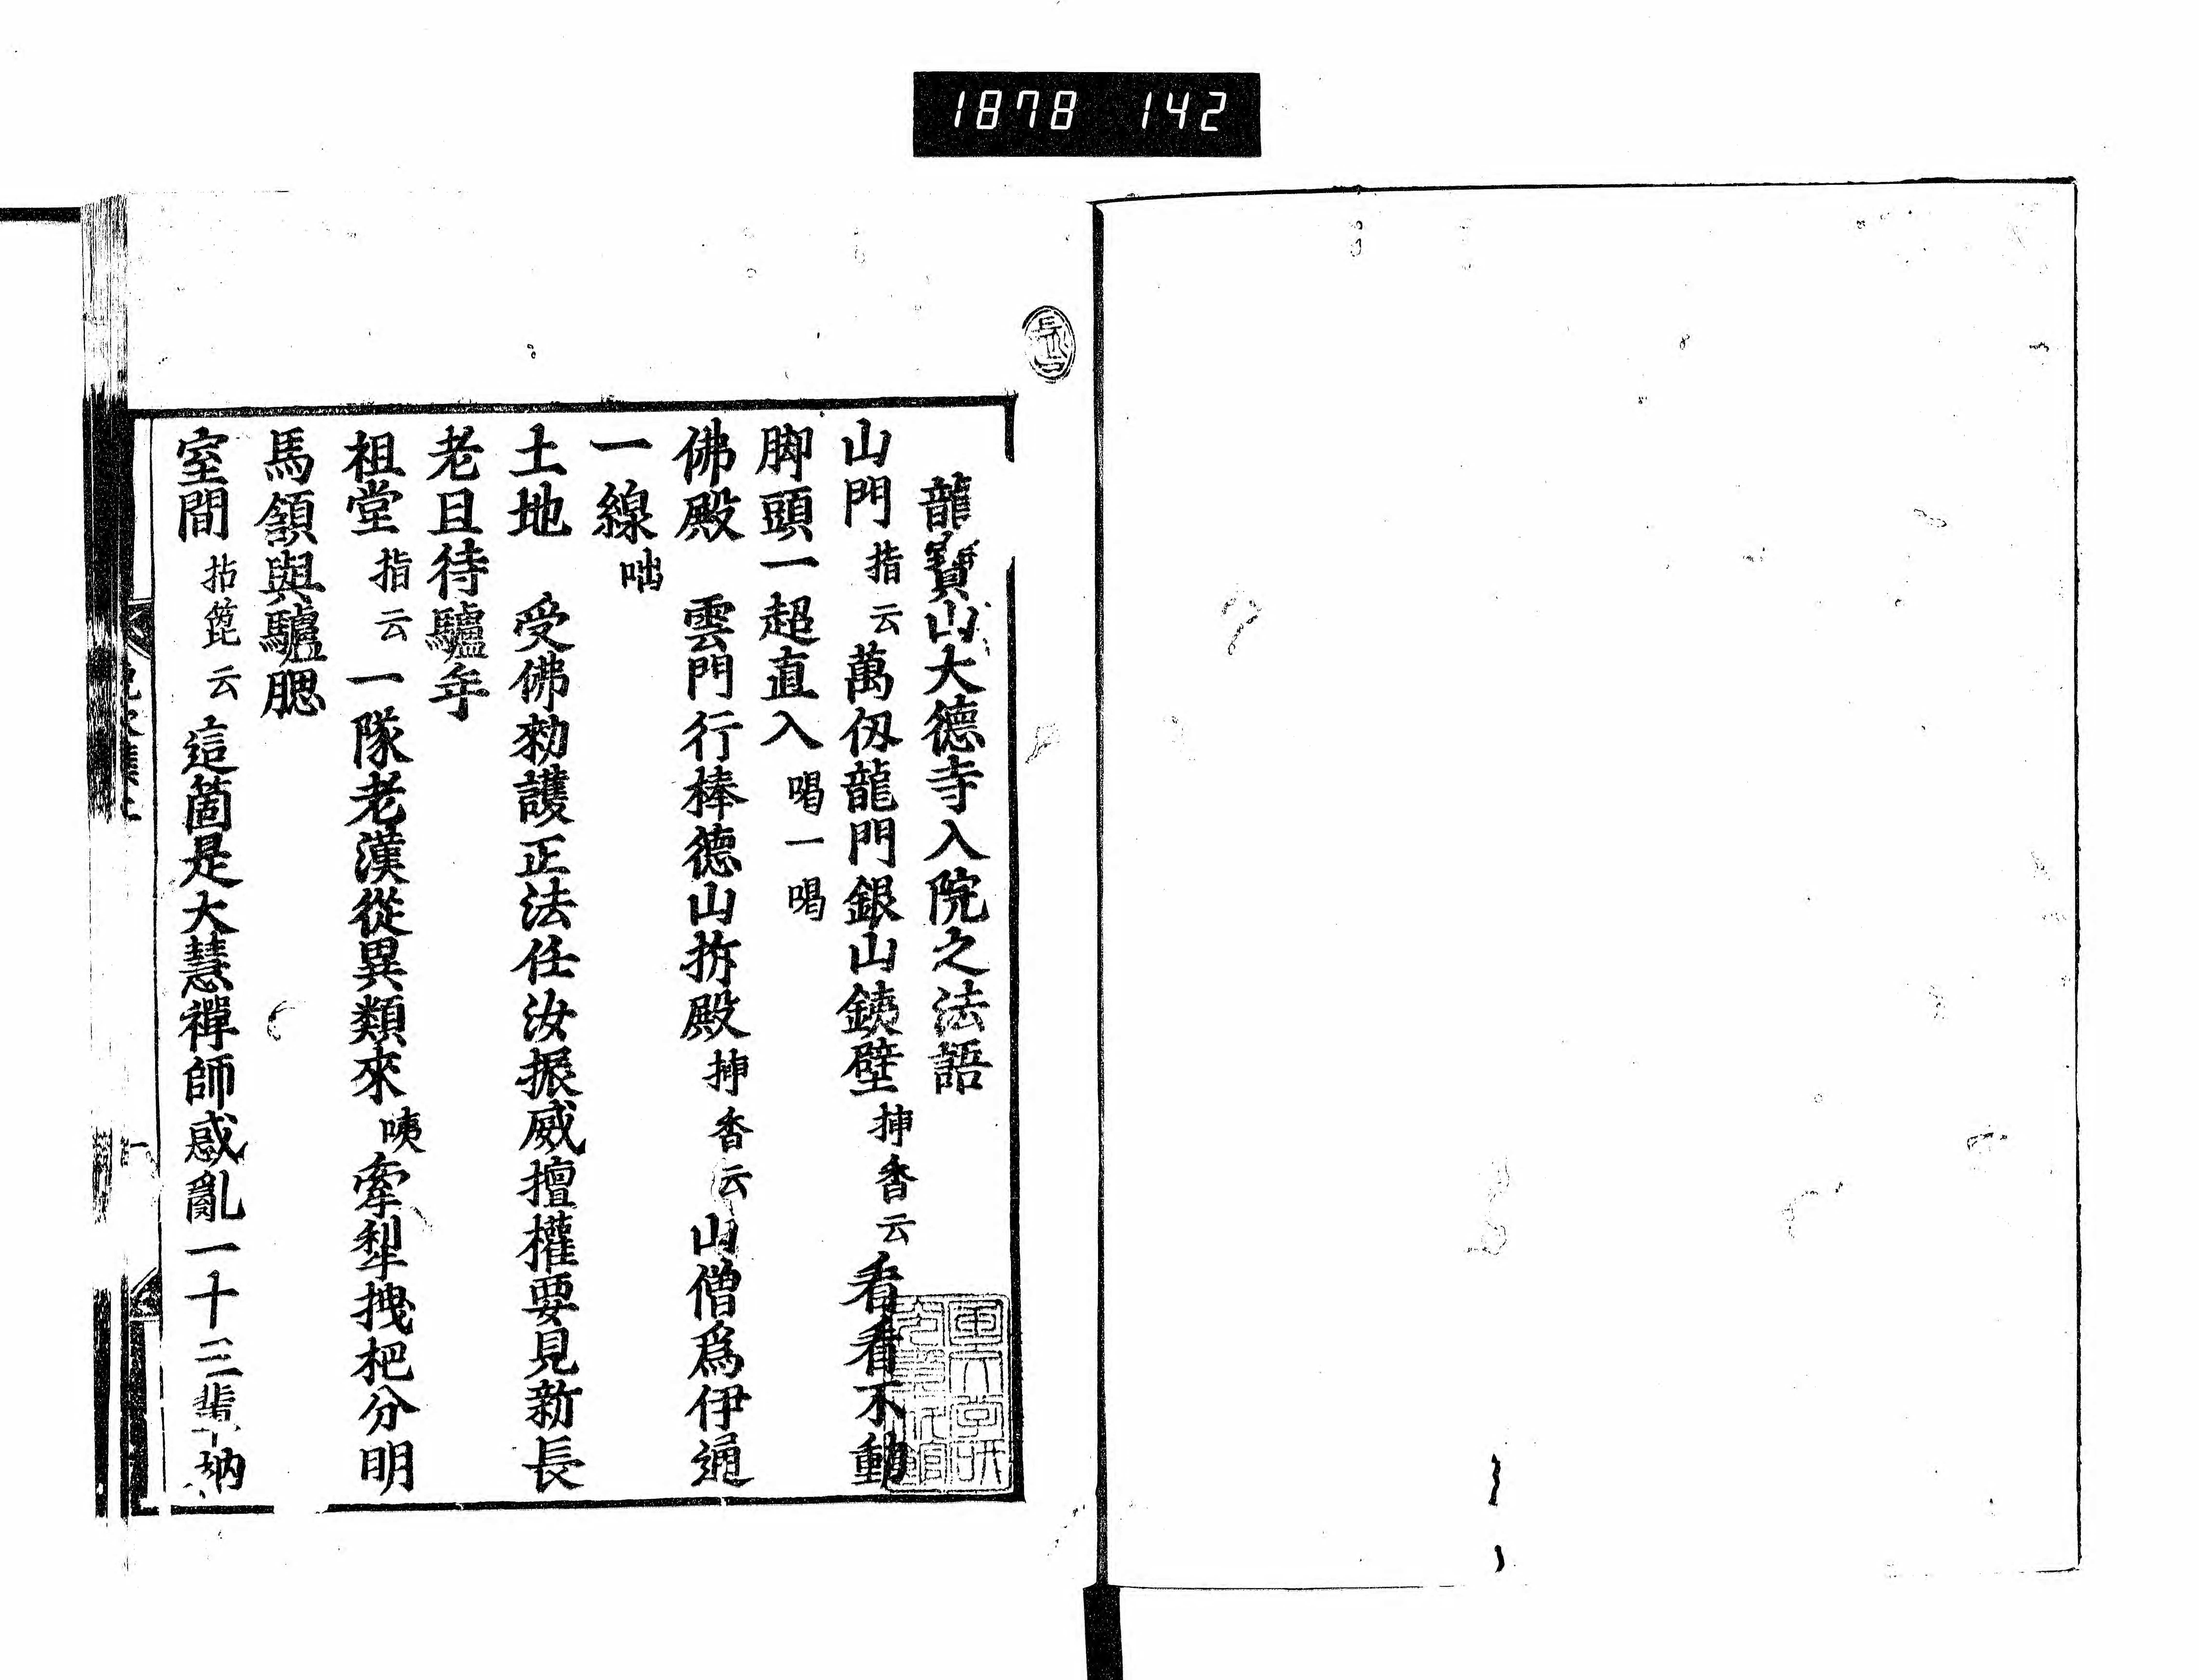 1878 142
龍寶山大德寺入院之法語
山門 指云 萬仭龍門銀山鐵壁 挿香云 看看不動
脚頭一超直入 喝一喝
佛殿 雲門行棒德山拆殿 挿香云 山僧爲伊通
一線 咄
土地 受佛勑護正法任汝振威擅權要見新長
老且待驢年
祖堂 指云 一隊老漢從異類來 咦 牽犁拽杷分明
馬頷與驢腮
室間 拈箆云 這箇是大慧禪師惑亂一十三輩衲